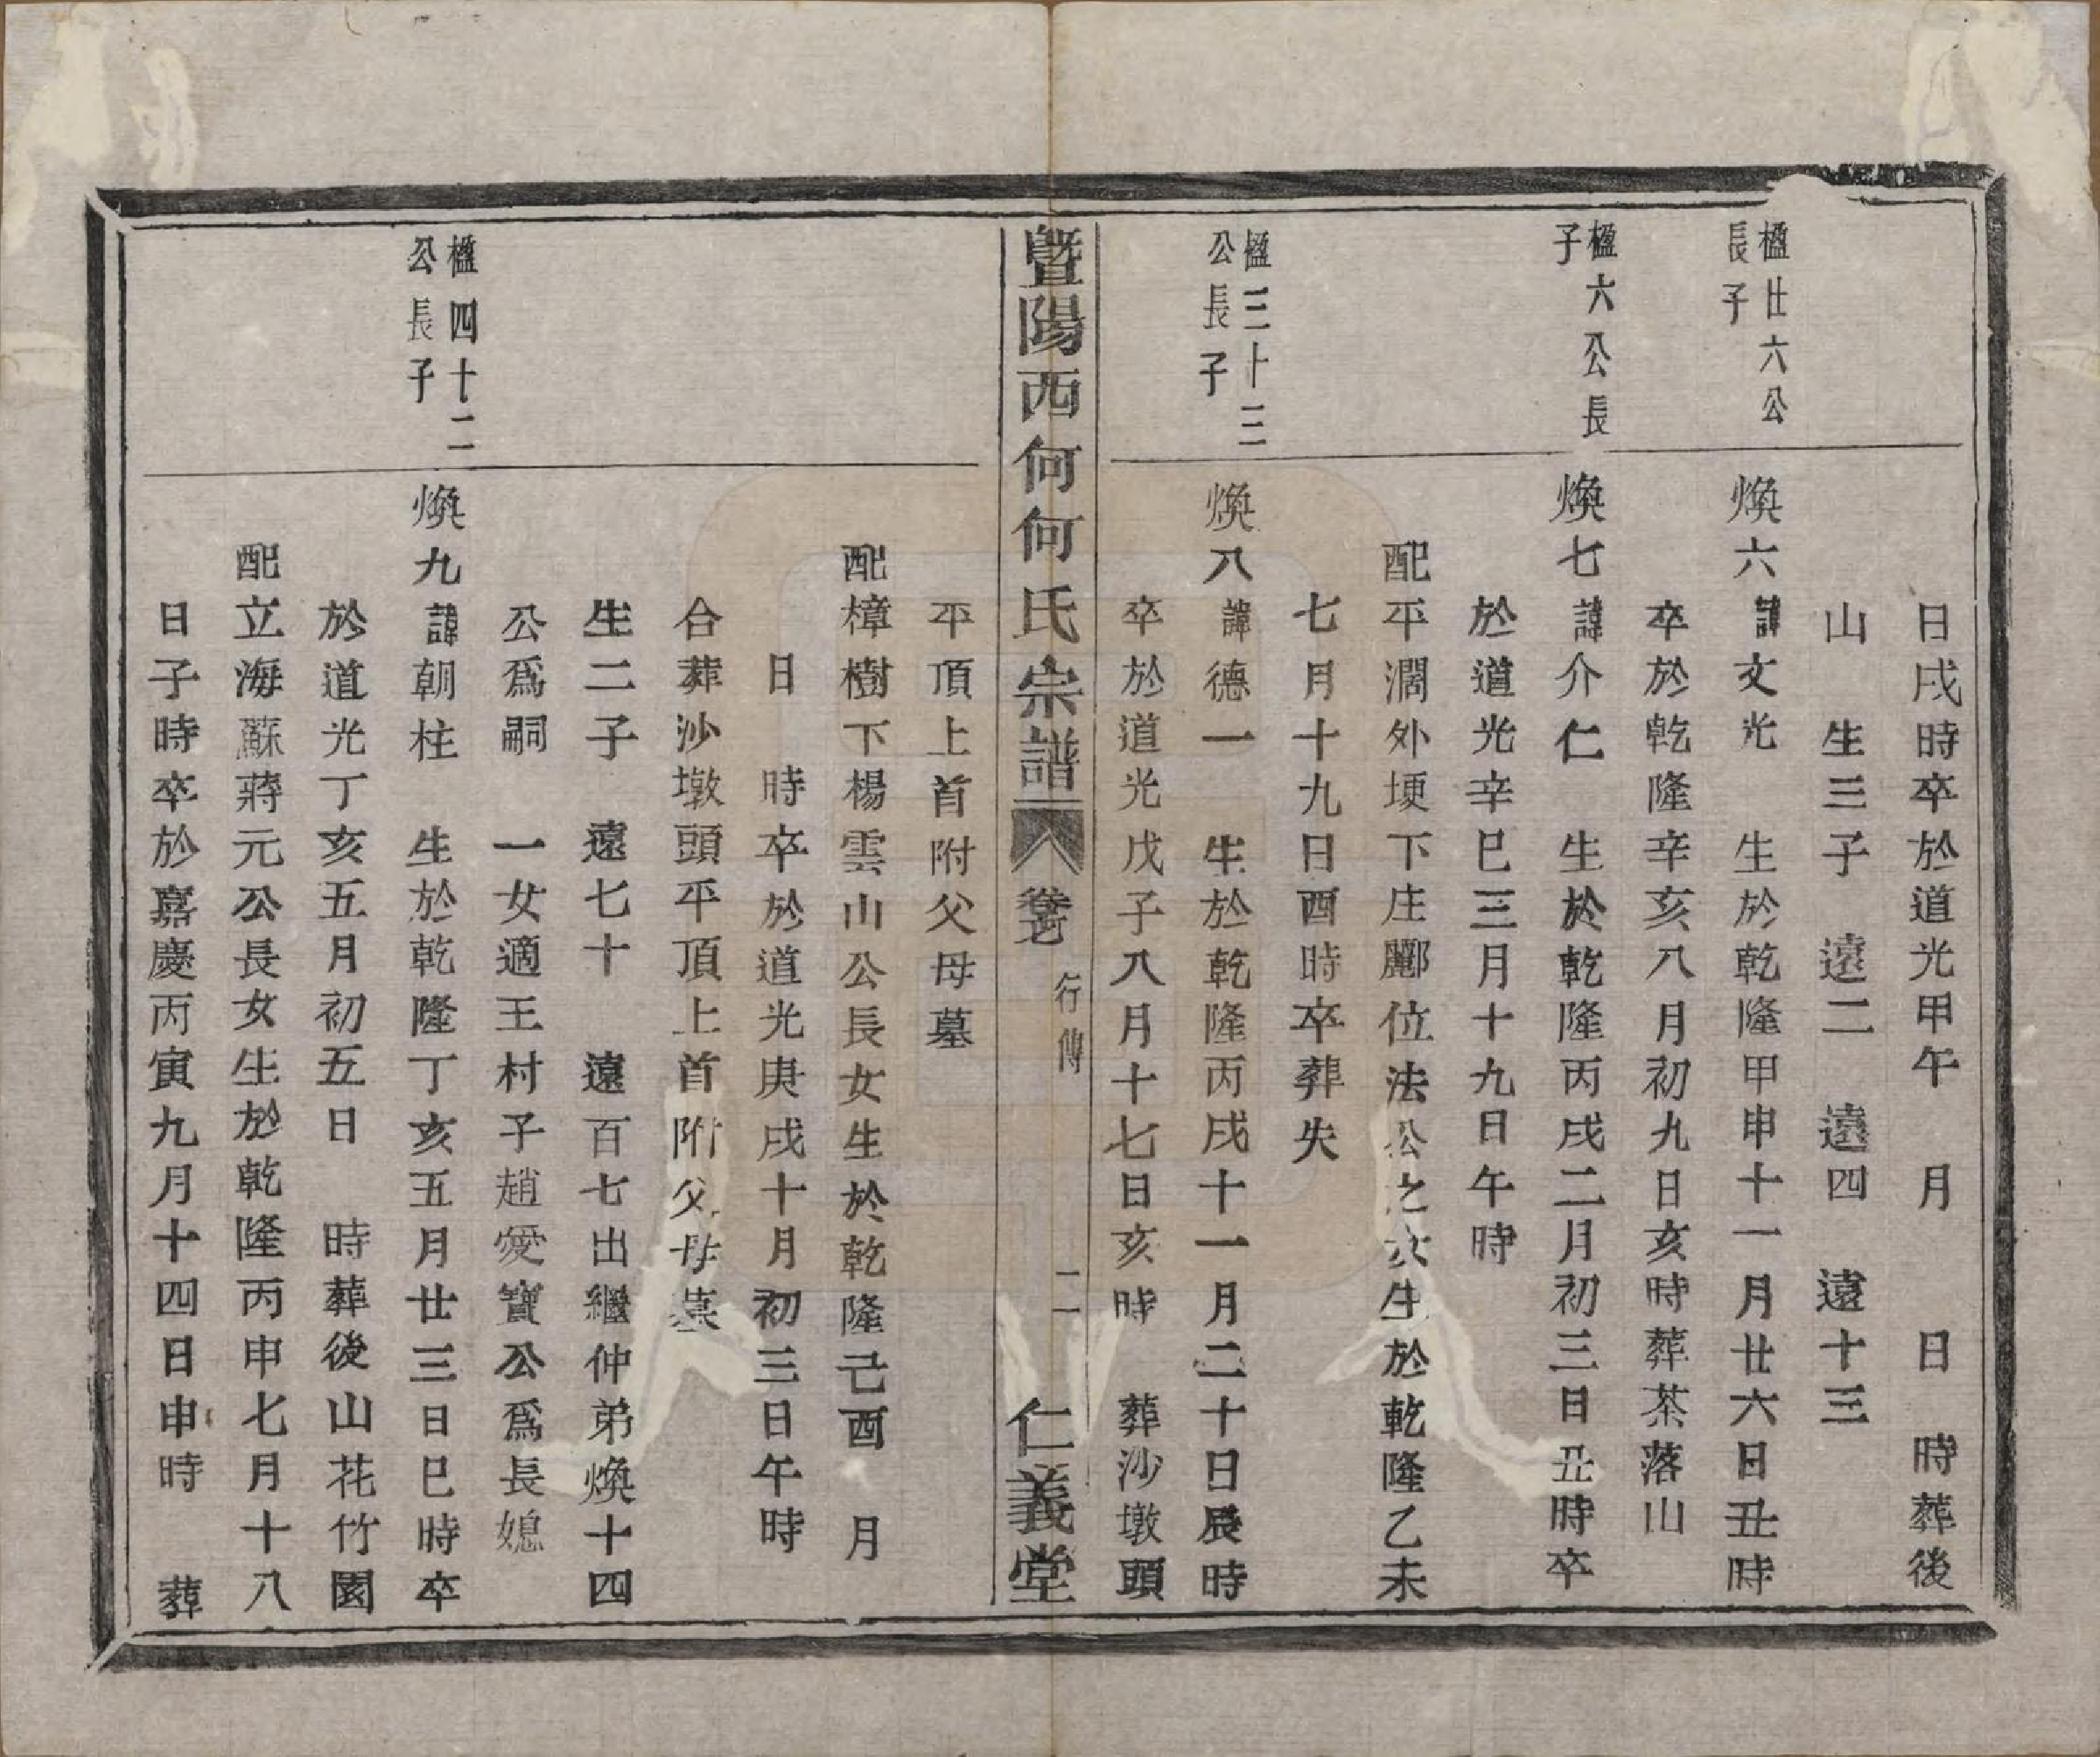 日戌時卒於道光甲午 月 日 時葬後
山 生三子 遠二 遠四 遠十三
楹廿六公
長子
煥六諱文光 生於乾隆甲申十一月廿六日丑時
卒於乾隆辛亥八月初九日亥時葬茶落山
楹六公長
子
煥七諱介仁 生於乾隆丙戌二月初三日丑時卒
於道光辛巳三月十九日午時
配平濶外埂下庄酈位法公之女生於乾隆乙未
七月十九日酉時卒葬失
楹三十三
公長子
煥八諱德一 生於乾隆丙戌十一月二十日辰時
卒於道光戊子八月十七日亥時 葬沙墩頭
暨陽西何何氏宗譜 卷 行傳 二 仁義堂
平頂上首附父母墓
配樟樹下楊雲山公長女生於乾隆己酉 月
日 時卒於道光庚戌十月初三日午時
合葬沙墩頭平頂上首附父母墓
生二子 遠七十 遠百七出繼仲弟煥十四
公爲嗣 一女適王村子趙愛寶公爲長媳
楹四十二
公長子
煥九諱朝柱 生於乾隆丁亥五月廿三日巳時卒
於道光丁亥五月初五日 時葬後山花竹園
配立海蘇蔣元公長女生於乾隆丙申七月十八
日子時卒於嘉慶丙寅九月十四日申時 葬